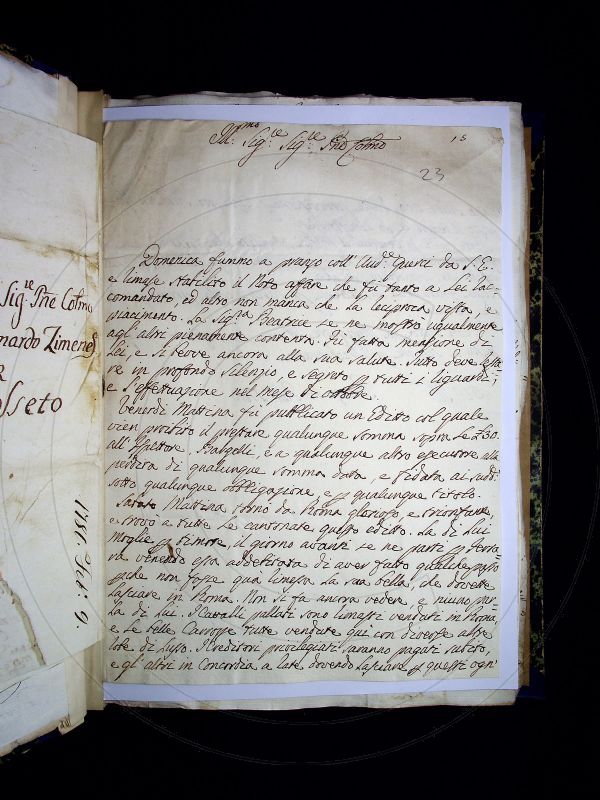 Ill.mo Sig.re Sig.re Pne Colmo
18
23
Domenica fummo a pranzo coll' Aud.e Guerci da S. E.
e rimase stabilito il Noto affare che fù tanto a Lei rac-
comandato, ed altro non manca che la reciproca vista, e
piacimento. La Sig.ra Beatrice se ne mostrò ugualmente
agl' altri pienamente contenta. Fù fatta menzione di
Lei, e si bevve ancora alla sua salute. Tutto deve esse
re in profondo silenzio, e segreto p tutti i riguardi;
e l'effettuazione nel mese di ottobre.
Venerdi Mattina fù pubblicato un Editto col quale
vien proibito il prestare qualunque somma sopra Le £30.
all' Esattore. Bargelli, e a qualunque altro esecutore alla
perdita di qualunque somma data, e fidata ai sudd.
sotto qualunque obbligazione, e p qualunque titolo.
Sabato Mattina tornò da Roma glorioso, e trionfante,
e trovò a tutte le cantonate questo editto. La di Lui
Moglie p timore, il giorno avanti se ne partì p
va venendo essa addebitata di aver fatto qualche passo
pche non fosse qua rimessa la sua bella, che dovette
lasciare in Roma. Non si fa ancora vedere, e niuno par-
la di Lui. I Cavalli pallati sono rimasti venduti in Roma,
e Le belle Carrozze tutte vendute qui con diverse altre
robe di Lusso. I Creditori privilegiati saranno pagati subito,
e gl' altri in Concordia a rate dovendo lasciare p questi ogn'
Sig.re Pne Colmo
nardo Zimenes
sseto
1781 Feb: 9.